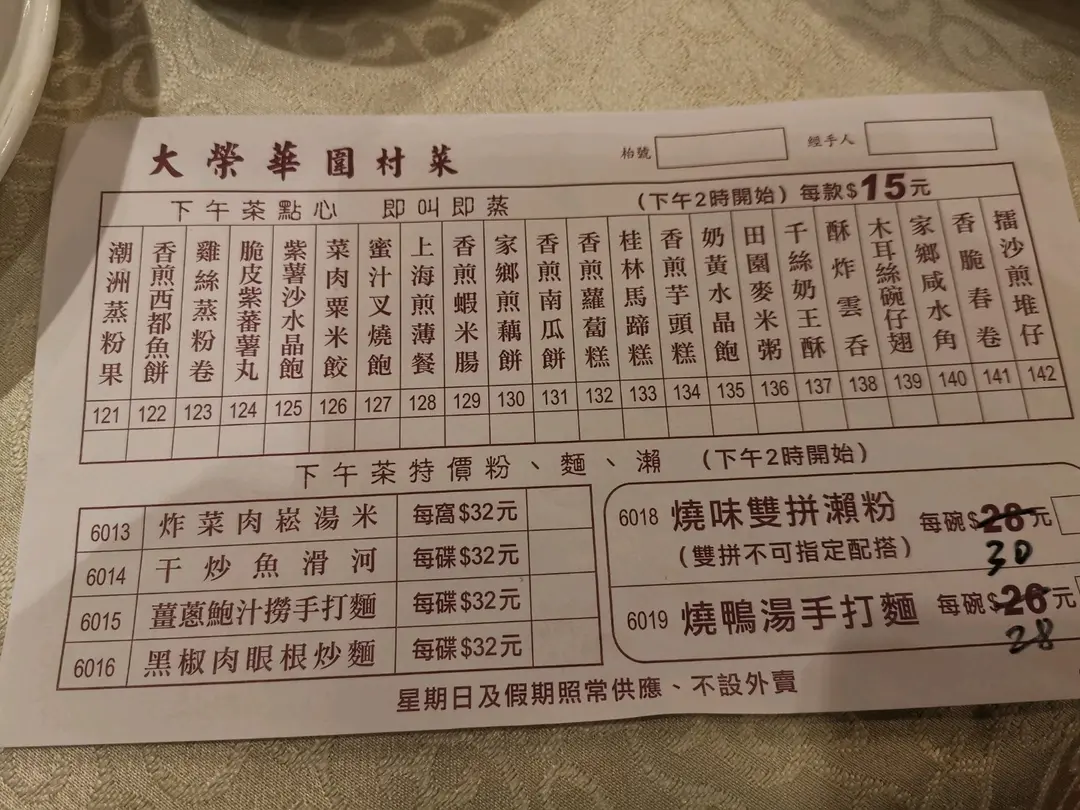 大榮華圍村菜
枱號
經手人
下午茶點心 即叫即蒸 (下午2時開始) 每款$15元
潮洲蒸粉果 121
香煎西都魚餅 122
雞絲蒸粉卷 123
脆皮紫蕃薯丸 124
紫薯沙水晶飽 125
菜肉粟米餃 126
蜜汁叉燒飽 127
上海煎薄餐 128
香煎蝦米腸 129
家鄉煎藕餅 130
香煎南瓜餅 131
香煎蘿蔔糕 132
桂林馬蹄糕 133
香煎芋頭糕 134
奶黃水晶飽 135
田園麥米粥 136
千絲奶王酥 137
酥炸雲吞 138
木耳絲碗仔翅 139
家鄉咸水角 140
香脆春卷 141
擂沙煎堆仔 142
下午茶特價粉、麵、瀨 (下午2時開始)
6013 炸菜肉崧湯米 每窩$32元
6014 干炒魚滑河 每碟$32元
6015 薑蔥鮑汁撈手打麵 每碟$32元
6016 黑椒肉眼根炒麵 每碟$32元
6018 燒味雙拼瀨粉 每碗$28元
30
(雙拼不可指定配搭)
6019 燒鴨湯手打麵 每碗$26元
28
星期日及假期照常供應、不設外賣